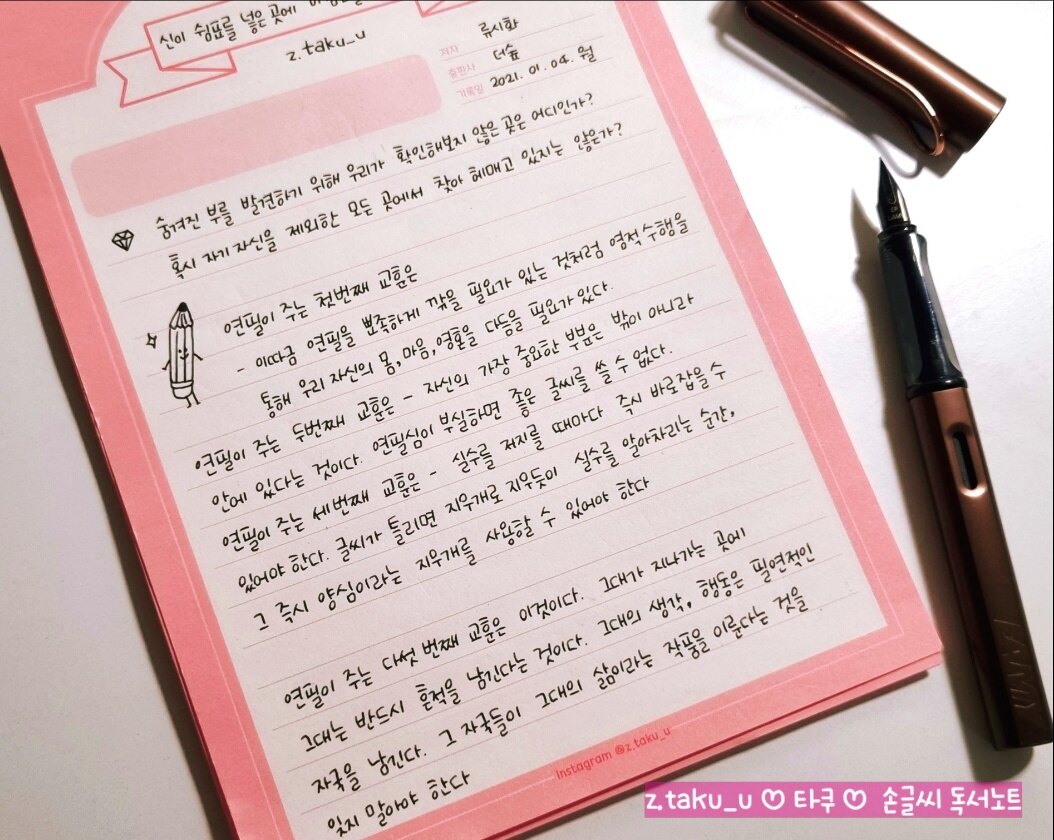 신이 쉼표를 넣은 곳에
z.taku_u
저자 류시화
출판사 더숲
기록일 2021. 01. 04. 월
숨겨진 부를 발견하기 위해 우리가 확인해보지 않은 곳은 어디인가?
혹시 자기 자신을 제외한 모든 곳에서 찾아 헤매고 있지는 않은가?
연필이 주는 첫번째 교훈은
- 이따금 연필을 뾰족하게 깎을 필요가 있는 것처럼 영적수행을
통해 우리 자신의 몸, 마음, 영혼을 다듬을 필요가 있다.
연필이 주는 두번째 교훈은 - 자신의 가장 중요한 부분은 밖이 아니라
안에 있다는 것이다. 연필심이 부실하면 좋은 글씨를 쓸 수 없다.
연필이 주는 세번째 교훈은 - 실수를 저지를 때마다 즉시 바로잡을 수
있어야 한다. 글씨가 틀리면 지우개로 지우듯이 실수를 알아차리는 순간,
그 즉시 양심이라는 지우개를 사용할 수 있어야 한다
연필이 주는 다섯 번째 교훈은 이것이다. 그대가 지나가는 곳에
그대는 반드시 흔적을 남긴다는 것이다. 그대의 생각, 행동은 필연적인
자국을 남긴다. 그 자국들이 그대의 삶이라는 작품을 이룬다는 것을
잊지 말아야 한다
Instagram @z.taku_u
LAMY
z.taku_u ♡ 타쿠 ♡ 손글씨 독서노트